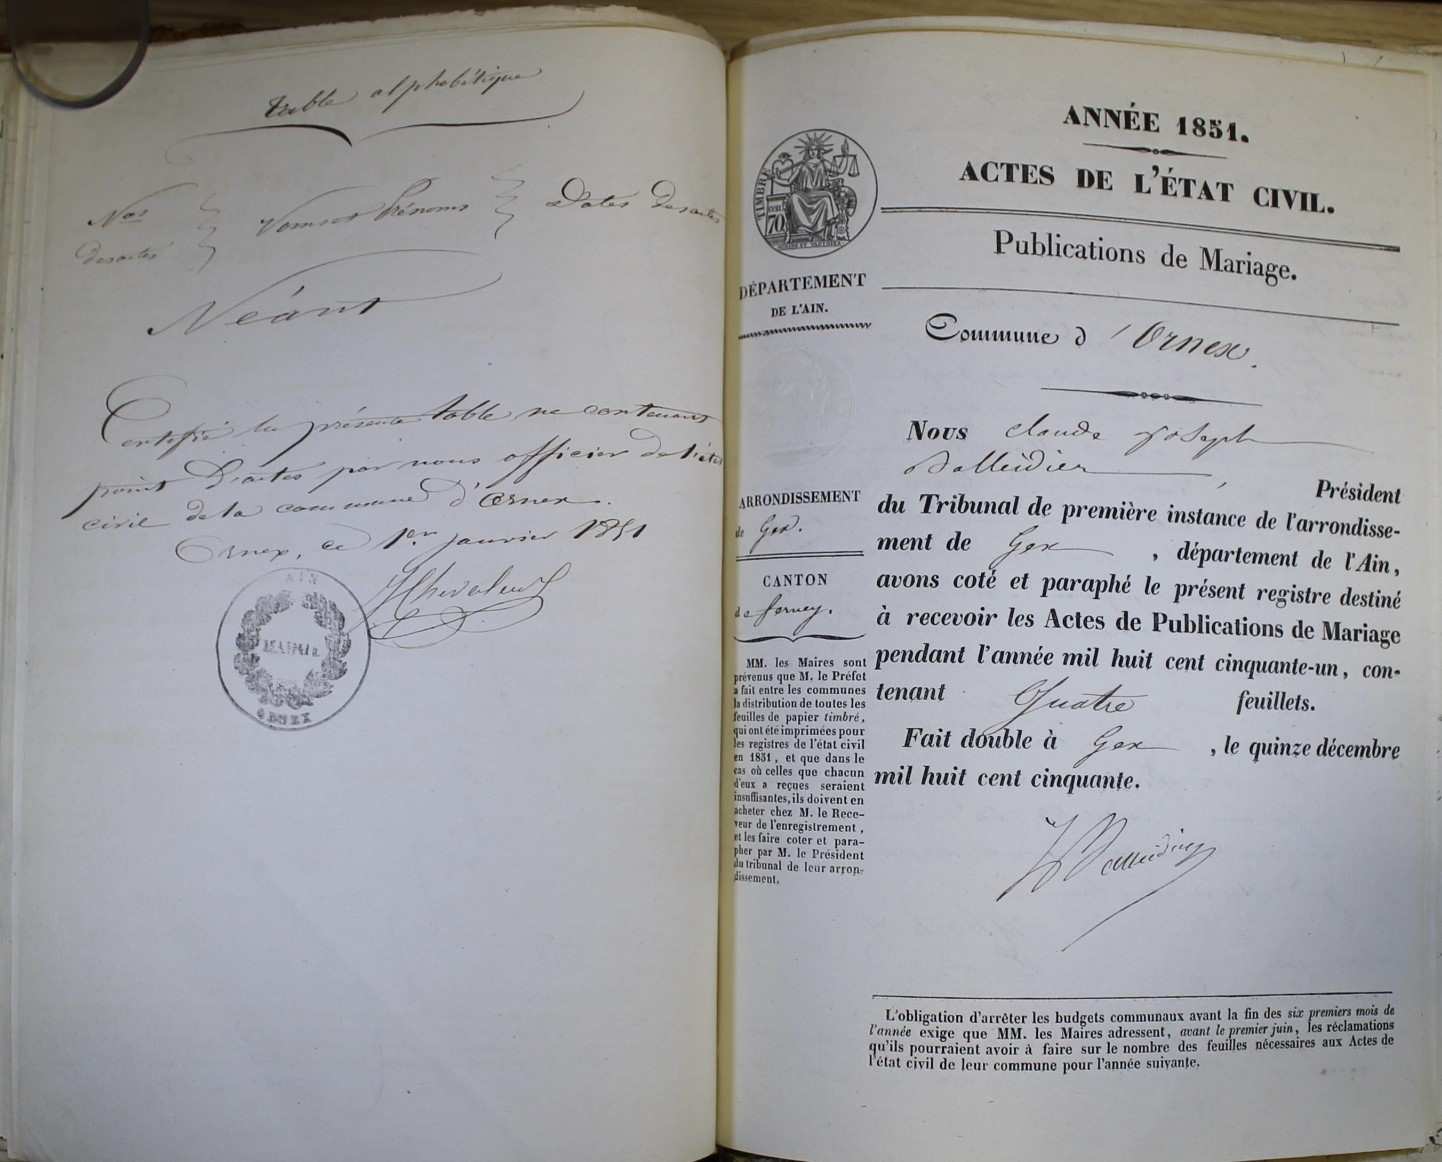 table alphabétique
Nos des actes
Noms et Prénoms
Dates des actes
Néant
Certifié la présente table ne contenant
point d'actes par nous officier de l'état
civil de la commune d'Ornex.
Ornex, ce 1er janvier 1851
AIN
MAIRIE
ORNEX
ANNÉE 1851.
ACTES DE L'ÉTAT CIVIL.
Publications de Mariage.
TIMBRE
70
DÉPARTEMENT
DE L'AIN.
Commune d'Ornex.
ARRONDISSEMENT
de Gex.
CANTON
de ferney.
MM. les Maires sont
prévenus que M. le Préfet
a fait entre les communes
la distribution de toutes les
feuilles de papier timbré,
qui ont été imprimées pour
les registres de l'état civil
en 1851, et que dans le
cas où celles que chacun
d'eux a reçues seraient
insuffisantes, ils doivent en
acheter chez M. le Rece-
veur de l'enregistrement,
et les faire coter et para-
pher par M. le Président
du tribunal de leur arron-
dissement.
Nous claude joseph
Balleidier, Président
du Tribunal de première instance de l'arrondisse-
ment de Gex, département de l'Ain,
avons coté et paraphé le présent registre destiné
à recevoir les Actes de Publications de Mariage
pendant l'année mil huit cent cinquante-un, con-
tenant Quatre feuillets.
Fait double à Gex, le quinze décembre
mil huit cent cinquante.
Balleidier
L'obligation d'arrêter les budgets communaux avant la fin des six premiers mois de
l'année exige que MM. les Maires adressent, avant le premier juin, les réclamations
qu'ils pourraient avoir à faire sur le nombre des feuilles nécessaires aux Actes de
l'état civil de leur commune pour l'année suivante.